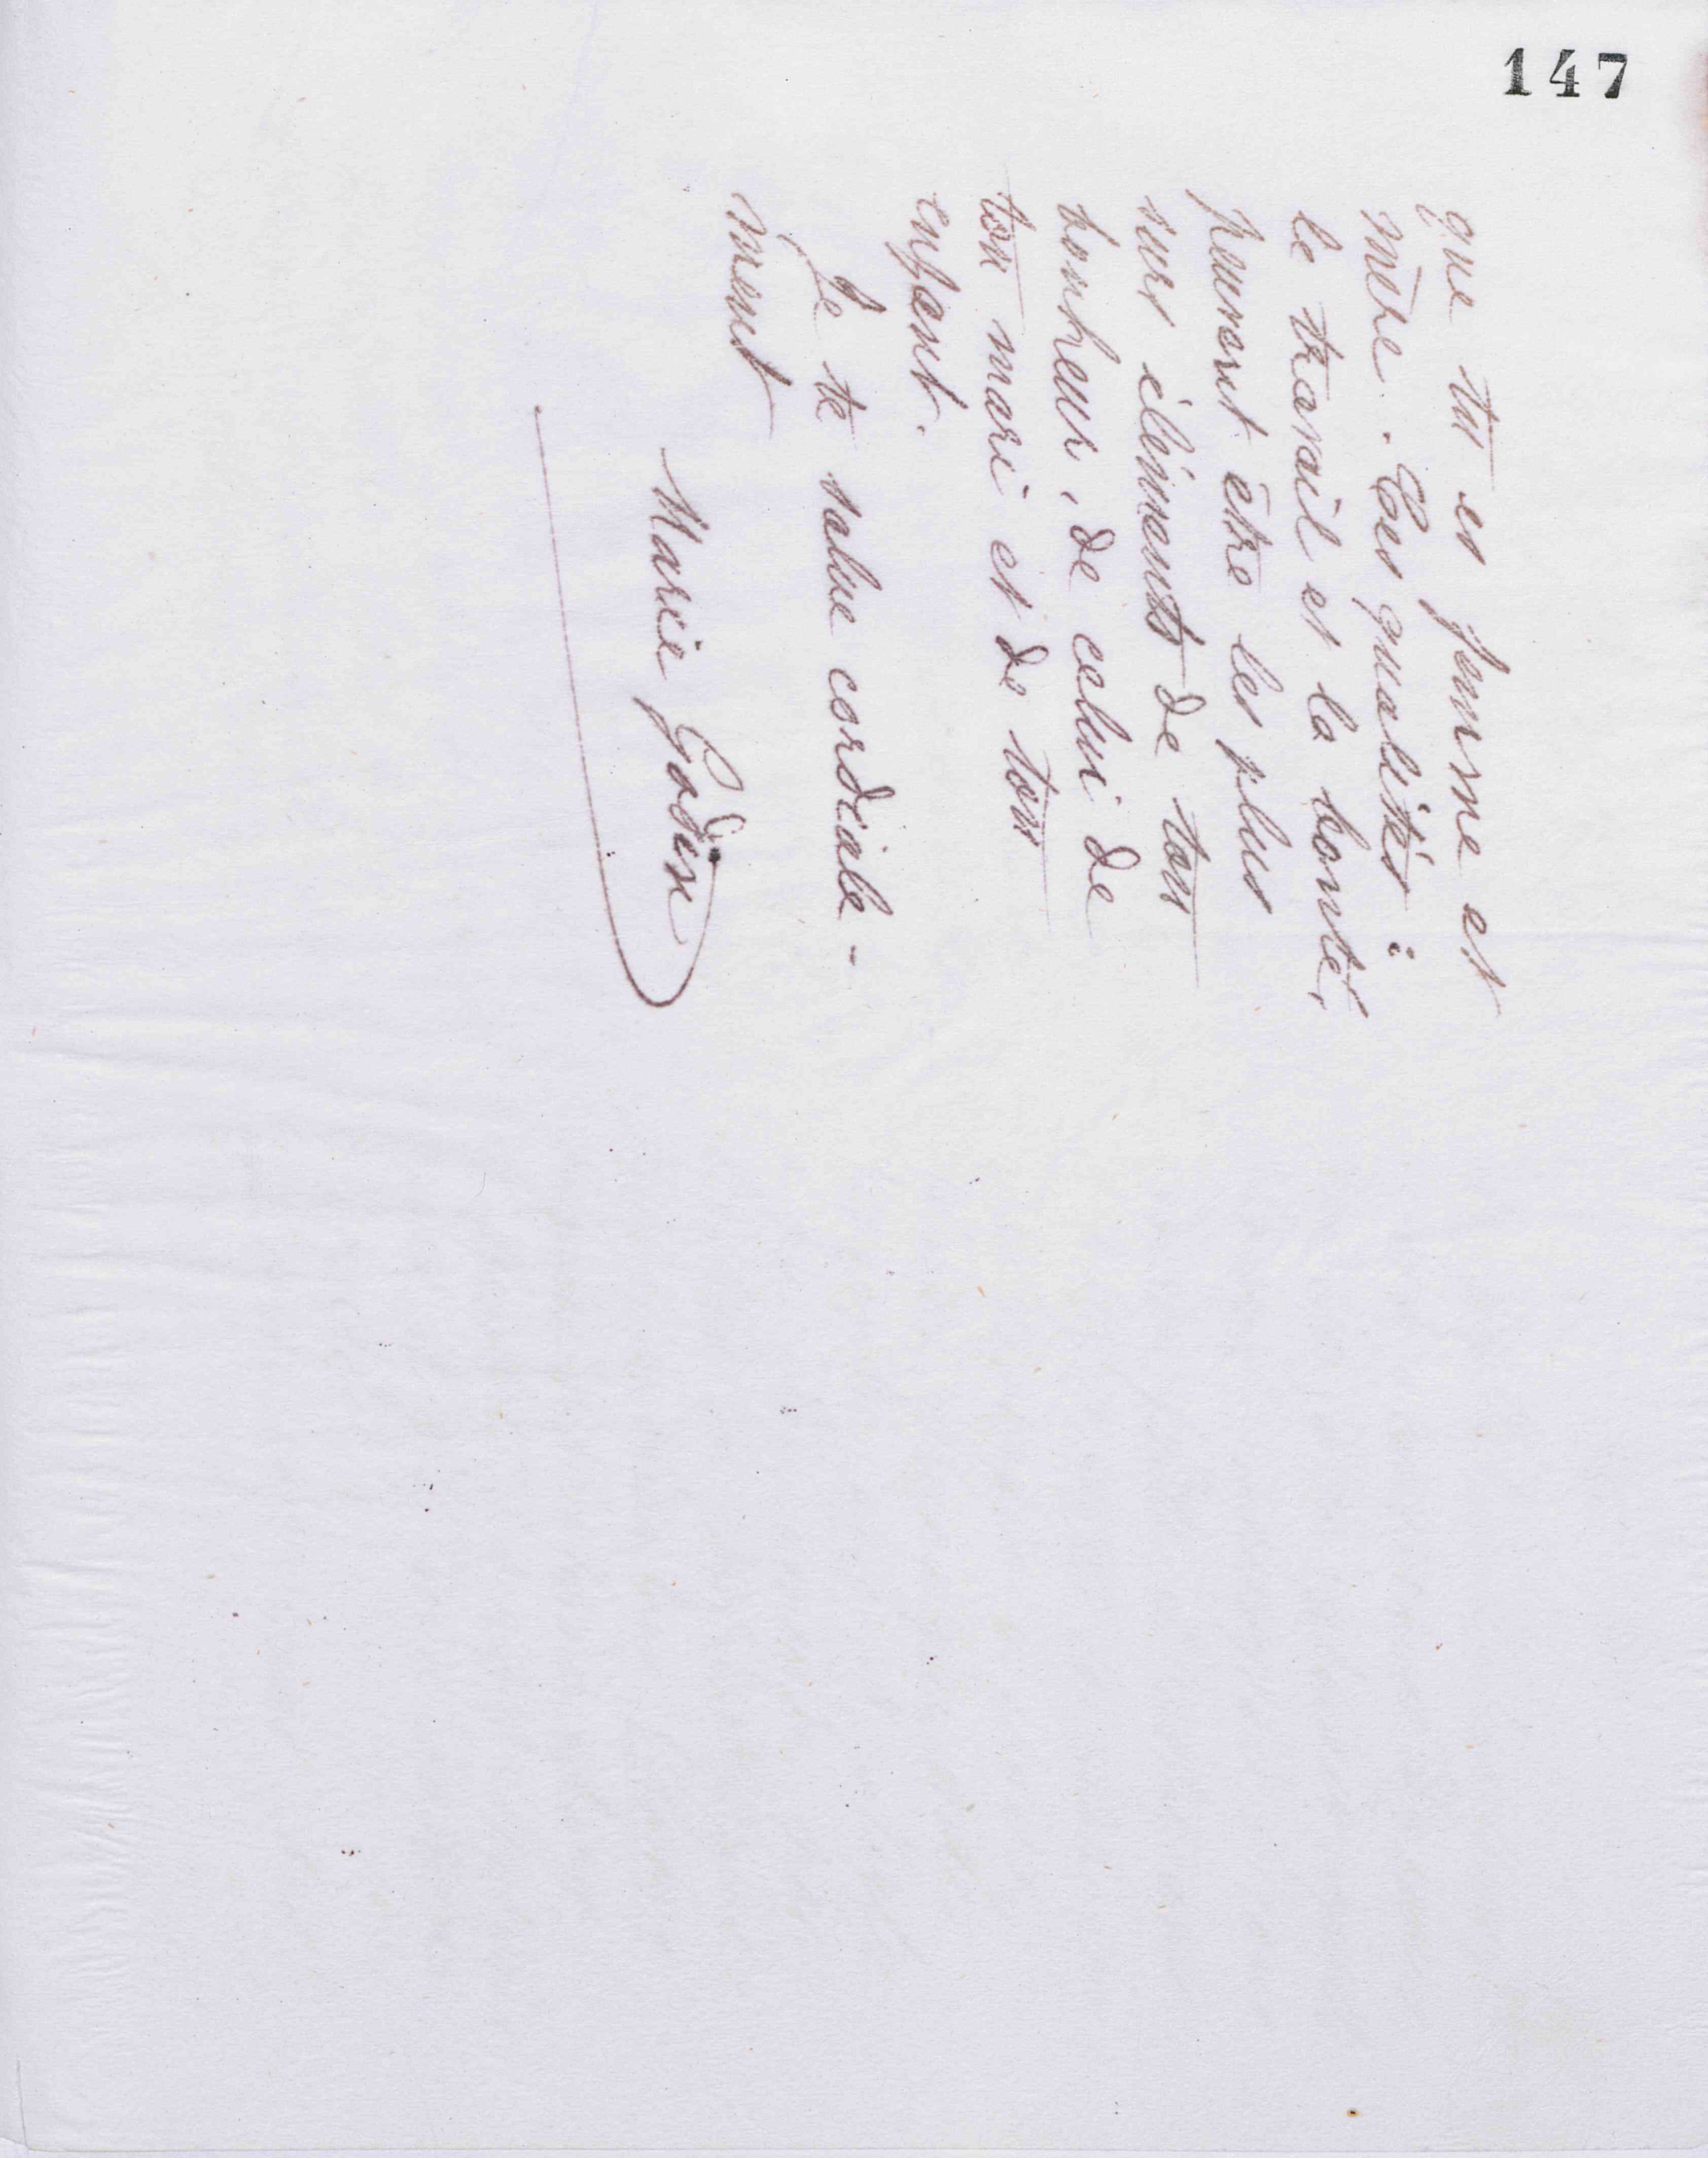 147
que tu es femme et
mère. Ces qualités :
le travail et la bonté,
peuvent être les plus
surs éléments de ton
bonheur, de celui de
ton mari et de ton
enfant.
Je te salue cordiale-
ment
Marie Godin